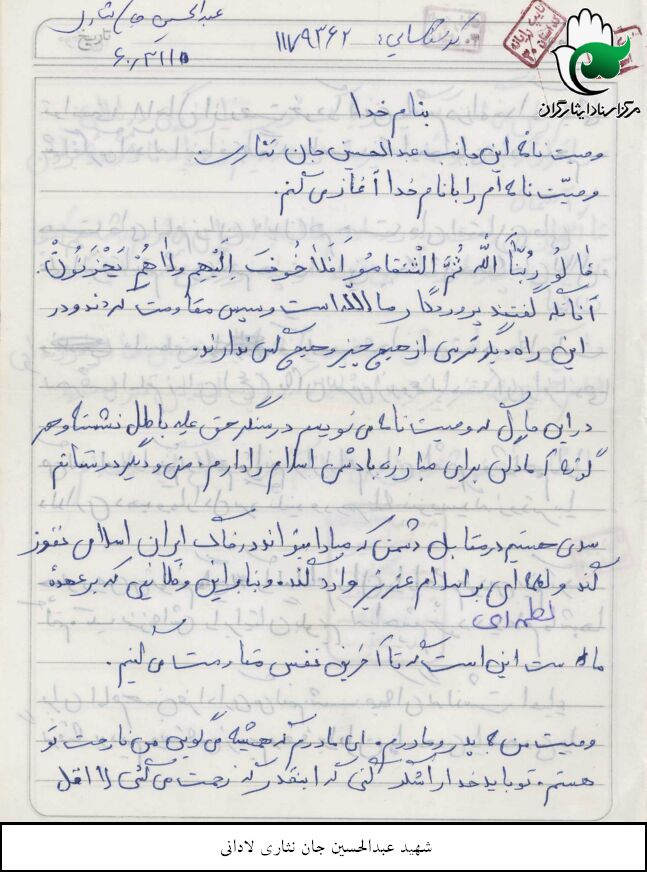 عبدالحسین جان نثاری
تاریخ ۶۰/۳/۱۱۵
کد شناسایی: ۱۱۷۹۳۶۲
مرکز اسناد ایثارگران
بنام خدا
وصیت نامه این جانب عبدالحسین جان نثاری
وصیّت نامه ام را با نام خدا آغاز می کنم.
قالُو رَبُّنَا اللّه ثُمَّ الْتَنقامُو اَفَلا خُوفَ اِلَیْهِم ولا هُمْ یَحْزَنُونْ.
آنانکه گفتند پروردگار ما الله است و سپس مقاومت کردند و در
این راه دیگر ترسی از هیچ چیز و هیچ کس ندارند.
در این حال که وصیت نامه می نویسم در سنگر حق علیه باطل نشسته و هر
گونه آمادگی برای مبارزه با دشمن اسلام را دارم. من و دیگر دوستانم
سدی هستیم در مقابل دشمن که مبادا بتواند در خاک ایران اسلامی نفوز
کند و لطمه ای بر اسلام عزیز وارد کند. و بنابراین وظایفی که بر عهدۀ
لطمه ای
ما ست این است که تا آخرین نفس مقاومت می کنیم.
وصیت من به پدر و مادرم. ای مادرم که همیشه می گویی من ناراحت تو
هستم. تو باید خدا را شکر کنی که اینقدر که زحمت می کشی لااقل
شهید عبدالحسین جان نثاری لادانی